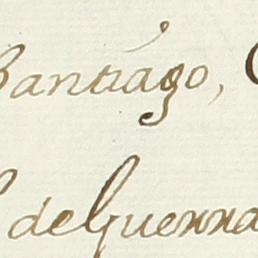 Santiágo,
de Guerra